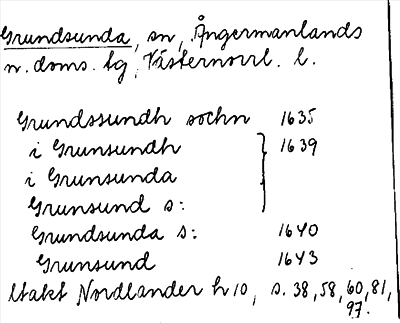 Grundsunda, sn, Ångermanlands
n. doms. tg, Västernorrl. l.
Grundssundh sochn 1635
i Grunsundh } 1639
i Grunsunda
Grunsund s:
Grundsunda s: 1640
Grunsund 1643
Utakt Nordlander h 10, s. 38, 58, 60, 81,
97.